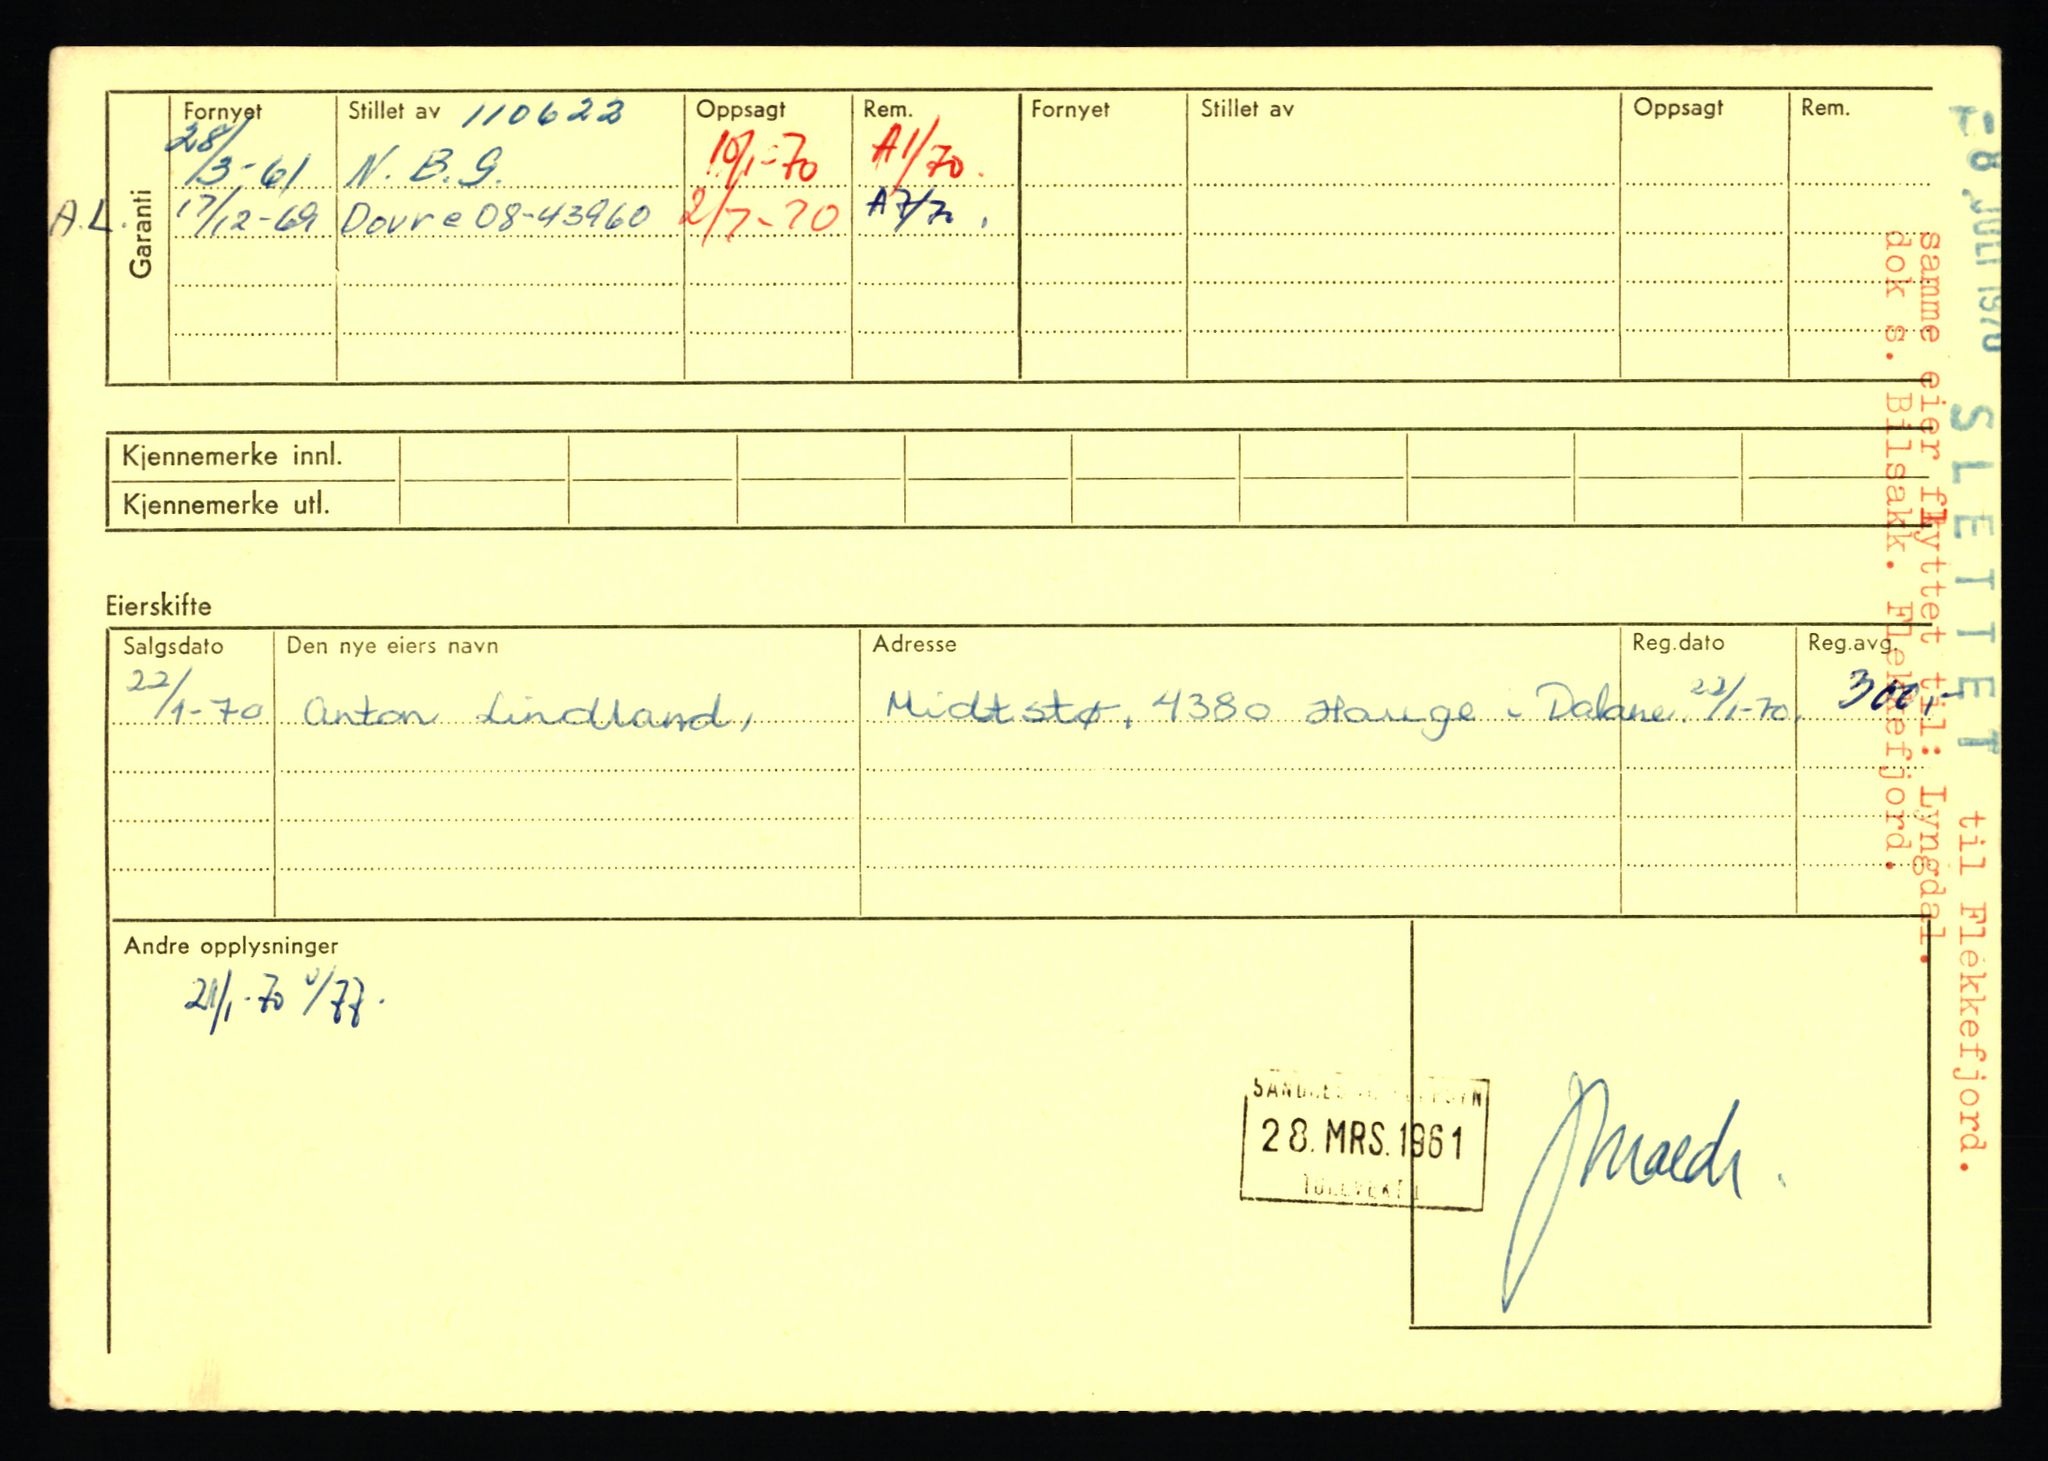 Fornyet Stillet av 110622 Oppsagt Rem. Fornyet Stillet av Oppsagt Rem.
28/3-61 N. B. G. 10/1-70 A1/70.
A.L. 17/12-69 Dovre 08-43960 2/7-70 A7/70.
Garanti
Kjennemerke innl.
Kjennemerke utl.
Eierskifte
Salgsdato Den nye eiers navn Adresse Reg.dato Reg.avg.
22/1-70 Anton Lindland, Midtstø, 4380 Hauge i Dalane. 22/1-70. 300,-
Andre opplysninger
21/1-70
28. MRS. 1961
-8. JULI 1970 SLETTET til Flekkefjord.
samme eier flyttet til: Lyngdal.
dok s. Bilsakk. Flekkefjord.